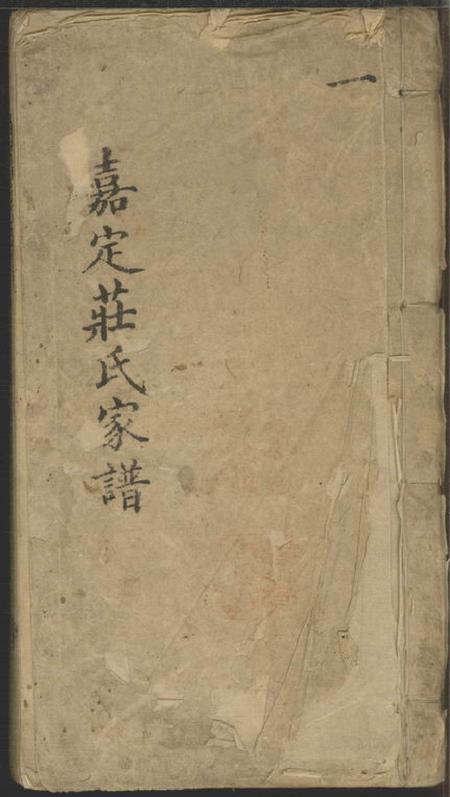 一
嘉定莊氏家譜